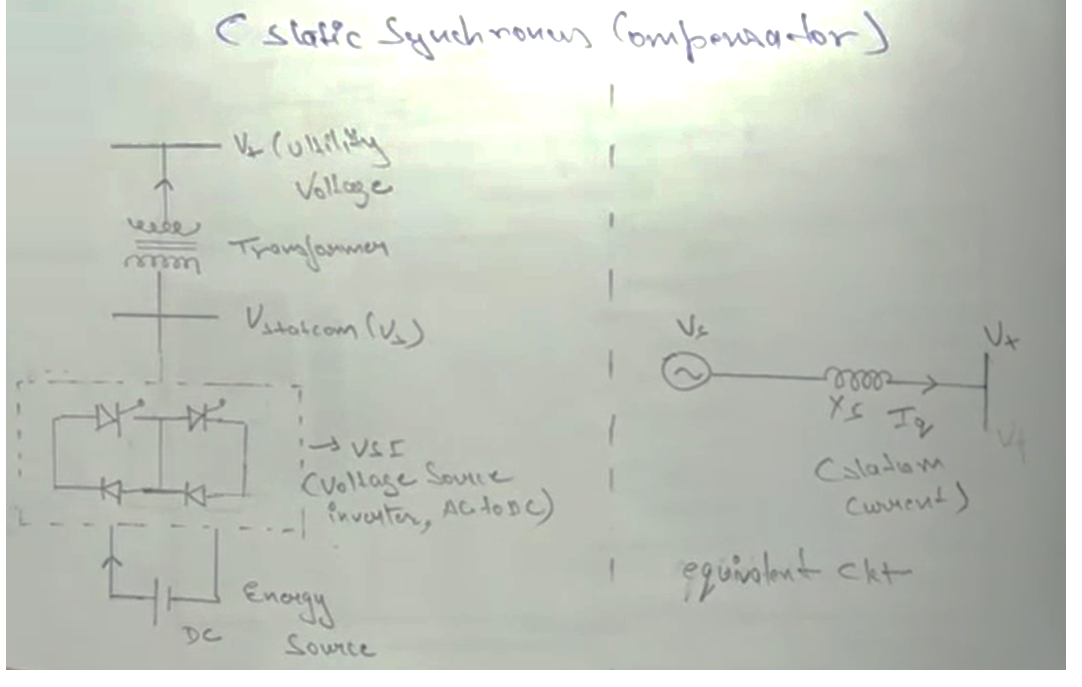 (Static Synchronous Compensator)
Vt (Utility
Voltage
Transformer
Vstatcom (Vs)
→ VSI
(Voltage Source
inverter, AC to DC)
Energy
Source
DC
Vs
Xs Iq
Vt
Vt
(Statcom
Current)
equivalent ckt